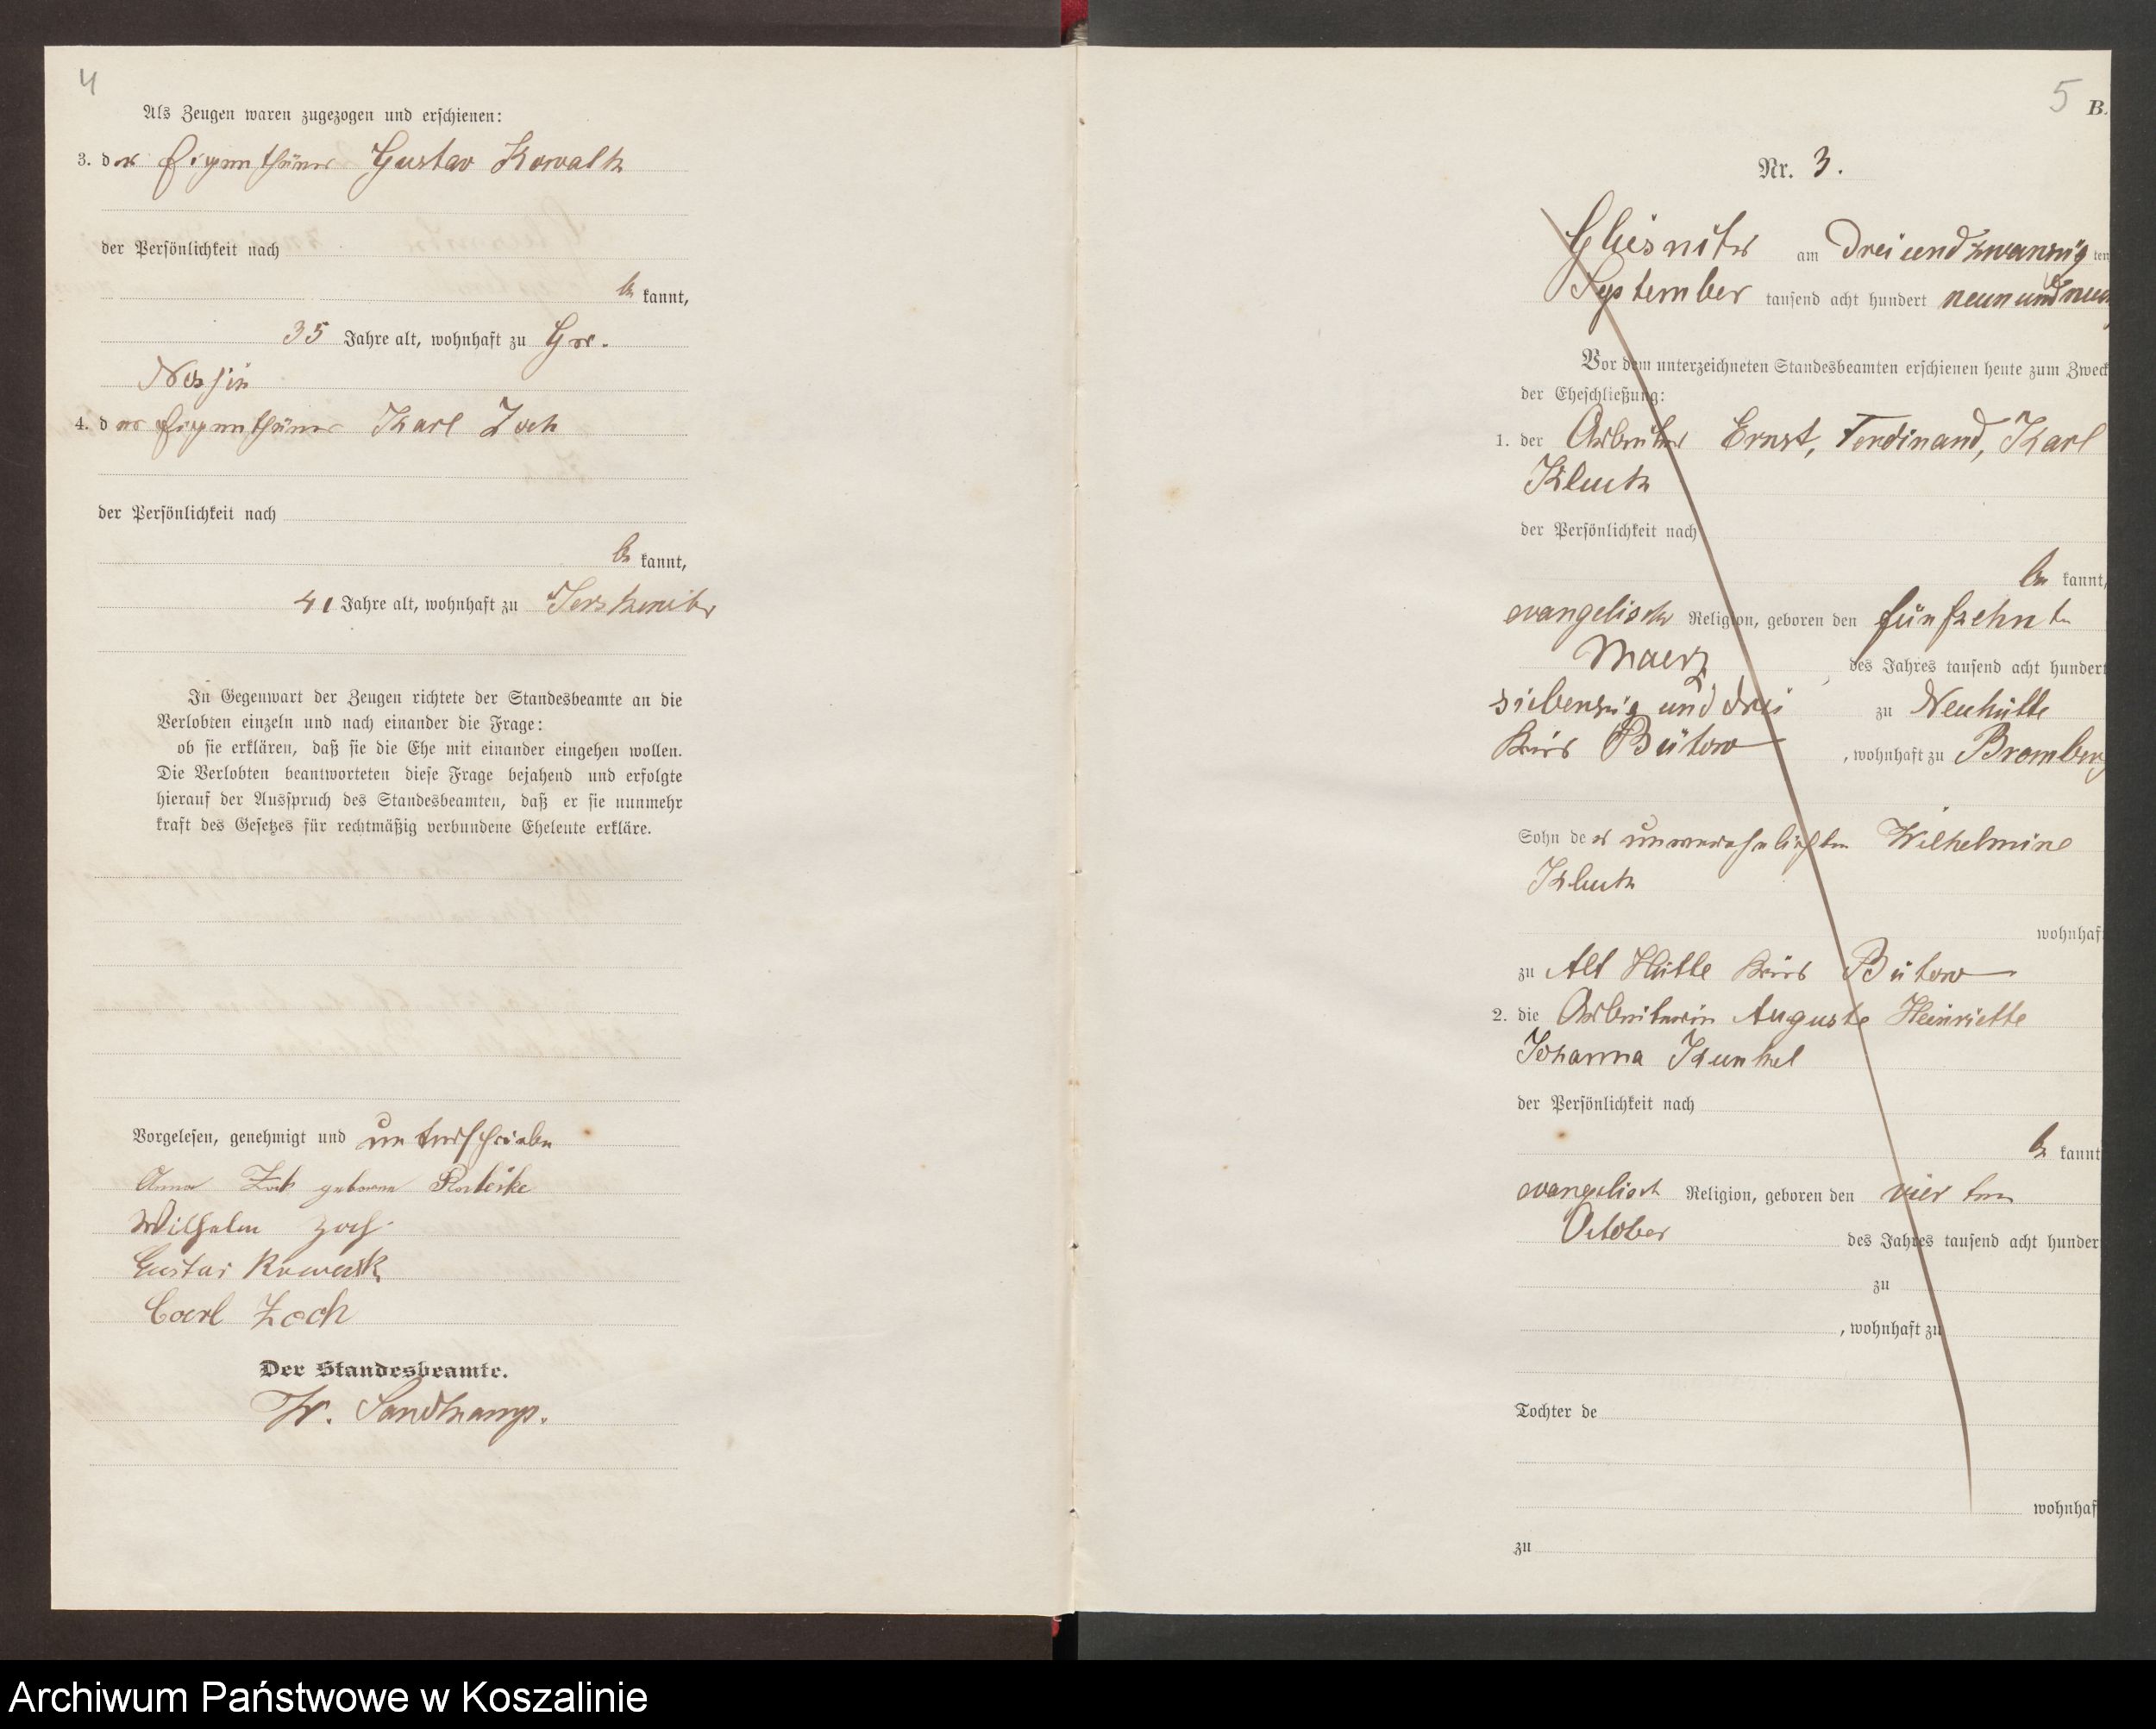 4
Als Zeugen waren zugezogen und erschienen:
3. der Eigenthümer Gustav Kowalk
der Persönlichkeit nach
be kannt,
35 Jahre alt, wohnhaft zu Gr.
Nossin
4. der Eigenthümer Karl Zoch
der Persönlichkeit nach
be kannt,
41 Jahre alt, wohnhaft zu Jerskewitz
In Gegenwart der Zeugen richtete der Standesbeamte an die
Verlobten einzeln und nach einander die Frage:
ob sie erklären, daß sie die Ehe mit einander eingehen wollen.
Die Verlobten beantworteten diese Frage bejahend und erfolgte
hierauf der Ausspruch des Standesbeamten, daß er sie nunmehr
kraft des Gesetzes für rechtmäßig verbundene Eheleute erkläre.
Vorgelesen, genehmigt und unterschrieben
Anna Zoch geborene Radeike
Wilhelm Zoch
Gustav Kowalk
Carl Zoch
Der Standesbeamte.
W. Sandkamp.
5 B.
Nr. 3.
Gliesnitz am dreiundzwanzig ten
September tausend acht hundert neunundneun
Vor dem unterzeichneten Standesbeamten erschienen heute zum Zweck
der Eheschließung:
1. der Arbeiter Ernst, Ferdinand, Karl
Kluck
der Persönlichkeit nach
be kannt,
evangelischer Religion, geboren den fünfzehnten
Maerz des Jahres tausend acht hundert
siebenzig und drei zu Neuhütte
Kreis Bütow, wohnhaft zu Bromberg
Sohn der unverehelichten Wilhelmine
Kluck
wohnhaf
zu Alt Hütte Kreis Bütow
2. die Arbeiterin Auguste Heinriette
Johanna Kunkel
der Persönlichkeit nach
be kannt
evangelisch Religion, geboren den vierten
October des Jahres tausend acht hunder
zu
, wohnhaft zu
Tochter de
wohnhaf
zu
Archiwum Państwowe w Koszalinie